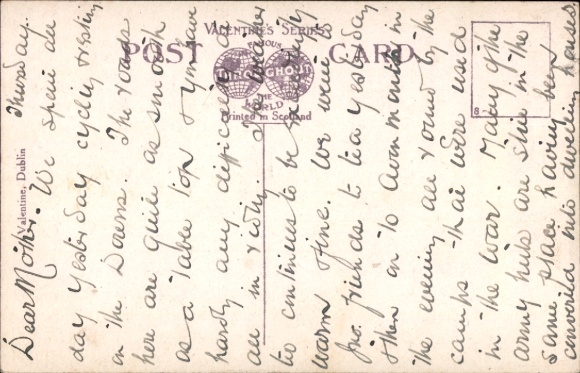 Thursday.
Dear Mother. We spent all
day yesterday cycling & resting
in the Downs. The roads
here are quite as smooth
as a table top & you have
hardly any difficulty
all in The weather
continues to be
warm & fine. We were
friends to tea yesterday
then on to Avonmouth in
the evening all round by the
camps that were used
in the war. Many of the
army huts are still in the
same place having been
converted into dwelling houses
VALENTINE'S SERIES
POST CARD
FAMOUS
THROUGHOUT
THE
WORLD
Printed in Scotland
Valentine, Dublin
8